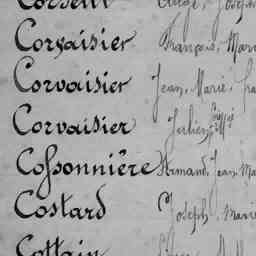 Corvaisier François, Mari
Corvaisier Jean, Marie, fra
Corvaisier Julien,
Cossonnière Armand, Jean, Ma
Costard Joseph, Marie
Cottain